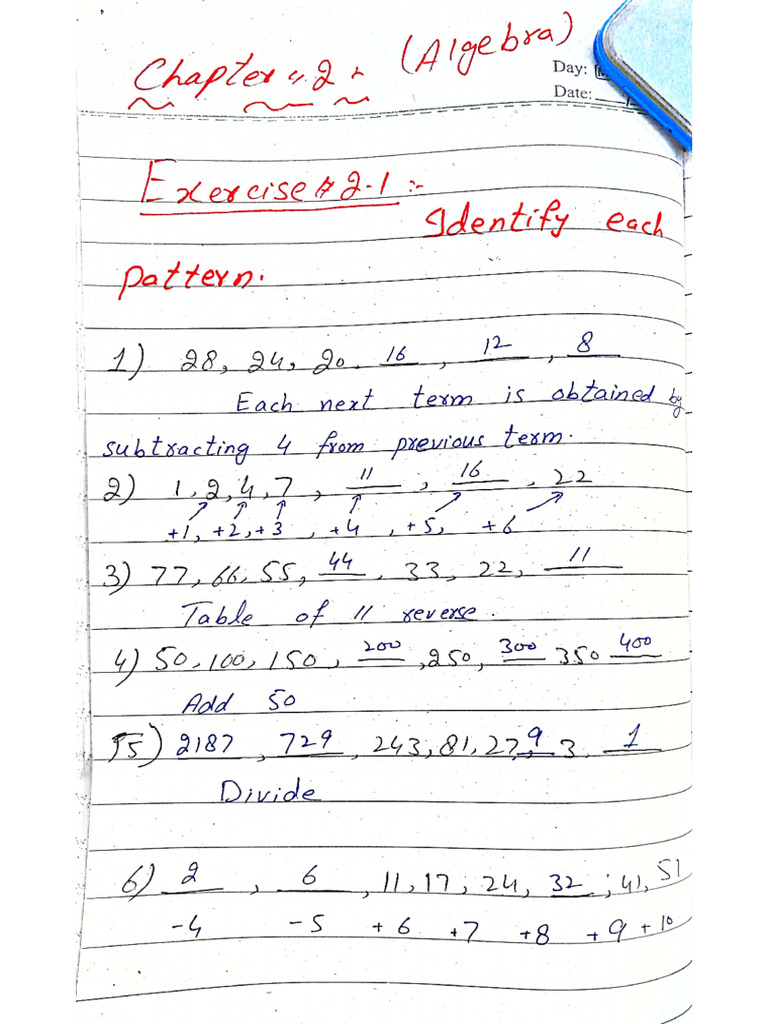 (Algebra)
Chapter # 2 :-
Day:
Date:
Exercise # 2.1 :-
Identify each
pattern.
1) 28, 24, 20, 16, 12, 8
Each next term is obtained by
subtracting 4 from previous term.
2) 1, 2, 4, 7, 11, 16, 22
+1, +2, +3, +4, +5, +6
3) 77, 66, 55, 44, 33, 22, 11
Table of 11 reverse.
4) 50, 100, 150, 200, 250, 300 350 400
Add 50
5) 2187, 729, 243, 81, 27, 9, 3, 1
Divide
6) 2, 6, 11, 17, 24, 32, 41, 51
-4 -5 +6 +7 +8 +9 +10